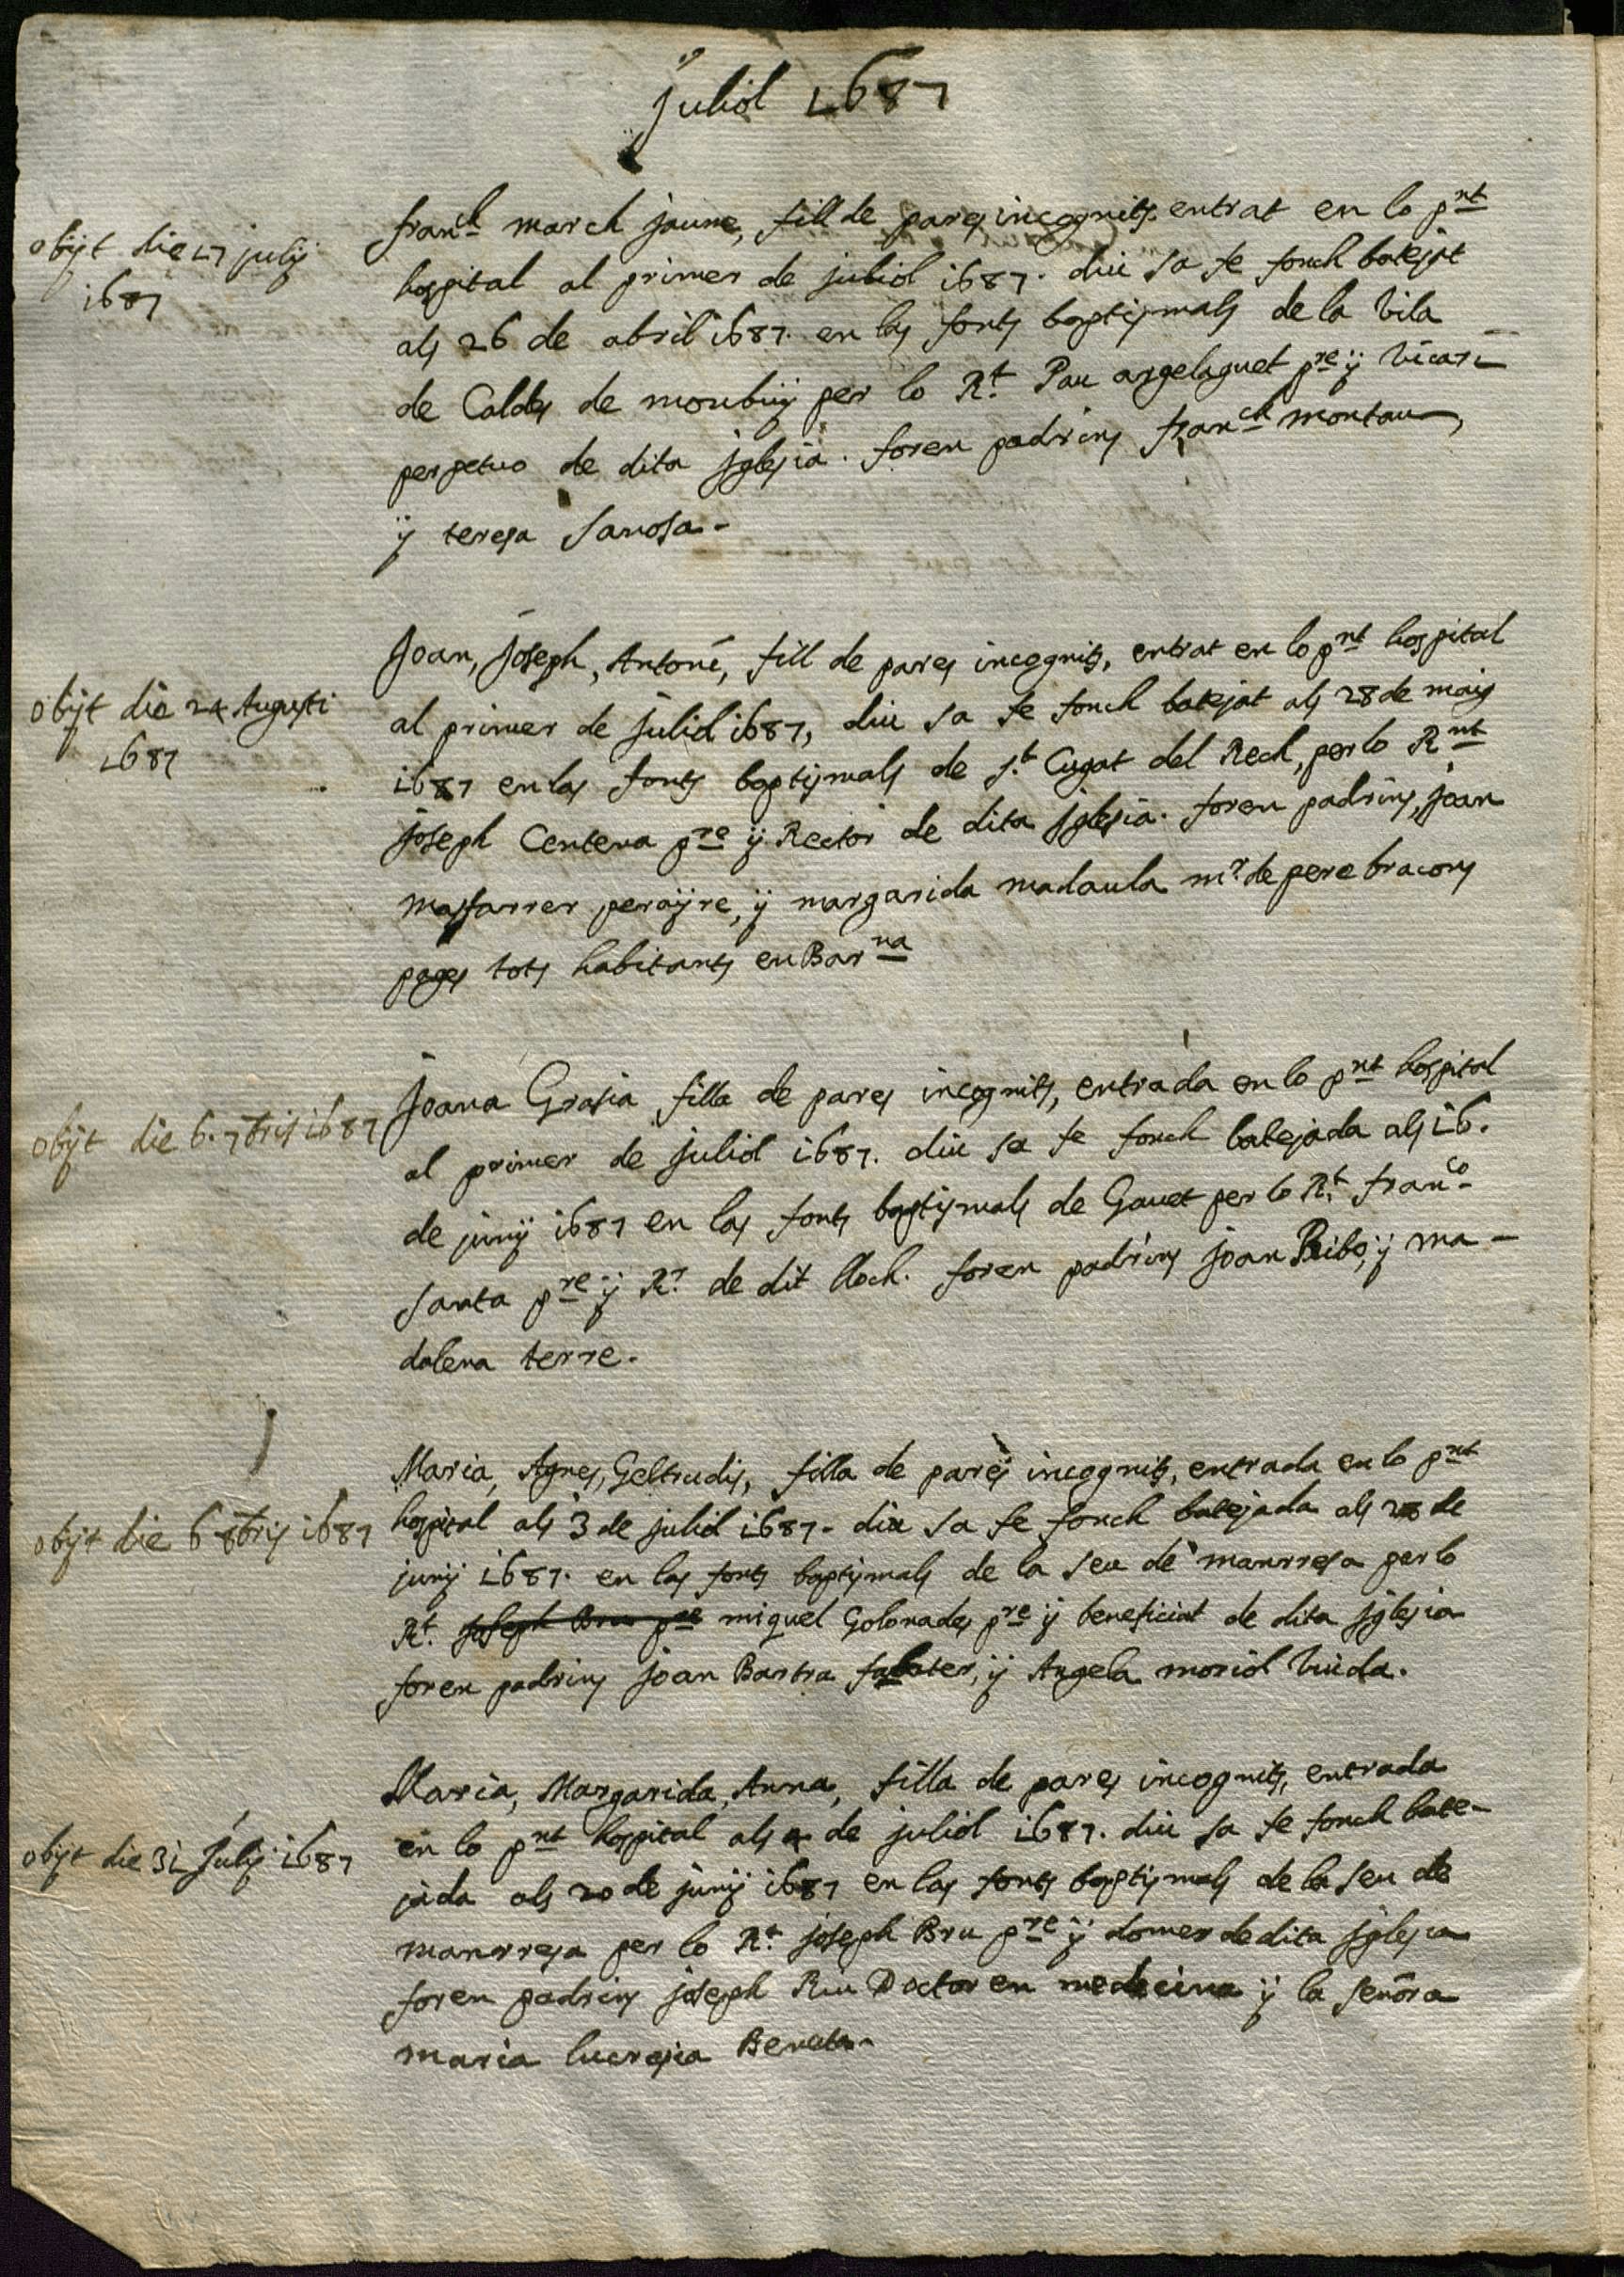 juliol 1687
obijt die 17 julij
1687
franch march jaume, fill de pares incognits entrat en lo pnt
hospital al primer de juliol 1687. diu sa fe fonch batejat
als 26 de abril 1687. en las fonts baptismals de la vila
de Caldes de monbuy per lo Rt. Pau argelaguet pre ÿ vicari
perpetuo de dita jglesia. foren padrins franch montau,
ÿ teresa
obijt die 24 Augusti
1687
Joan, Joseph, Antoni, fill de pares incognits, entrat en lo pnt hospital
al primer de juliol 1687, diu sa fe fonch batejat als 28 de maig
1687 en las fonts baptismals de st. Cugat del Rech, per lo Rnt
joseph Centena pre ÿ Rector de dita jglesia. foren padrins, joan
masfarrer perayre, ÿ margarida madaula mr. de pere bracons
pages tots habitants en Barna
obijt die 6. 7bris 1687
Joana Grasia filla de pares incognits, entrada en lo pnt hospital
al primer de juliol 1687. diu sa fe fonch batejada als 16.
de junÿ 1687 en las fonts baptismals de Gavet per lo Rt. franco
santa pre ÿ Rr. de dit lloch. foren padrins joan Ribo, ÿ ma-
dalena terre.
obijt die 6 8bris 1687
Maria, Agnes, Geltrudis, filla de pares incognits, entrada en lo pnt
hospital als 3 de juliol 1687. diu sa fe fonch batejada als 28 de
junÿ 1687. en las fonts baptismals de la seu de manrresa per lo
Rt. joseph Bru pre miquel Golorades pre ÿ beneficiat de dita jglesia
foren padrins joan Bartra sabater, ÿ Angela moriol viuda.
obijt die 31 Julij 1687
Maria, Margarida, Anna, filla de pares incognits, entrada
en lo pnt hospital als 4 de juliol 1687. diu sa fe fonch bate-
jada als 20 de junÿ 1687 en las fonts baptismals de la seu de
manrresa per lo Rt. joseph Bru pre ÿ domer de dita jglesia
foren padrins joseph Riu Doctor en medecina ÿ la señora
maria lucresia